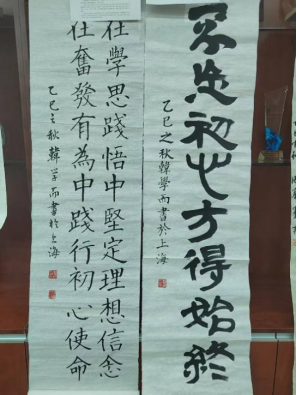 不忘初心方得始終
乙巳之秋韓學而書於上海
在學思踐悟中堅定理想信念
在奮發有為中踐行初心使命
乙巳之秋韓學而書於上海